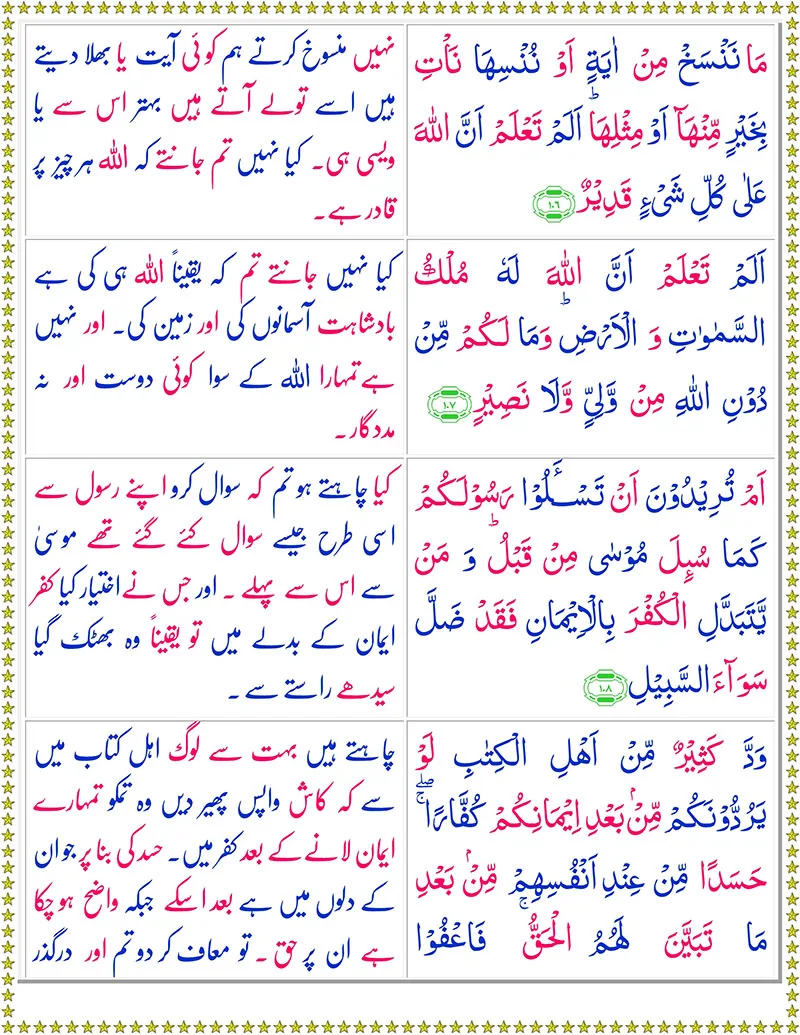 مَا نَنْسَخْ مِنْ اٰيَةٍ اَوْ نُنْسِهَا نَاْتِ
بِخَيْرٍ مِّنْهَاۤ اَوْ مِثْلِهَا ؕ اَلَمْ تَعْلَمْ اَنَّ اللّٰهَ
عَلٰى كُلِّ شَىْءٍ قَدِيْرٌ ﴿۱۰۶﴾
نہیں منسوخ کرتے ہم کوئی آیت یا بھلا دیتے
ہیں اسے تو لے آتے ہیں بہتر اس سے یا
ویسی ہی۔ کیا نہیں تم جانتے کہ اللہ ہر چیز پر
قادر ہے۔
اَلَمْ تَعْلَمْ اَنَّ اللّٰهَ لَهٗ مُلْكُ
السَّمٰوٰتِ وَ الْاَرْضِ ؕ وَمَا لَـكُمْ مِّنْ
دُوْنِ اللّٰهِ مِنْ وَّلِىٍّ وَّلَا نَصِيْرٍ ﴿۱۰۷﴾
کیا نہیں جانتے تم کہ یقیناً اللہ ہی کی ہے
بادشاہت آسمانوں کی اور زمین کی۔ اور نہیں
ہے تمہارا اللہ کے سوا کوئی دوست اور نہ
مددگار۔
اَمْ تُرِيْدُوْنَ اَنْ تَسْـَٔـلُوْا رَسُوْلَـكُمْ
كَمَا سُٮِٕلَ مُوْسٰى مِنْ قَبْلُ ؕ وَ مَنْ
يَّتَبَدَّلِ الْکُفْرَ بِالْاِيْمَانِ فَقَدْ ضَلَّ
سَوَآءَ السَّبِيْلِ ﴿۱۰۸﴾
کیا چاہتے ہو تم کہ سوال کرو اپنے رسول سے
اسی طرح جیسے سوال کئے گئے تھے موسیٰ
سے اس سے پہلے ۔ اور جس نے اختیار کیا کفر
ایمان کے بدلے میں تو یقیناً وہ بھٹک گیا
سیدھے راستے سے ۔
وَدَّ کَثِيْرٌ مِّنْ اَهْلِ الْكِتٰبِ لَوْ
يَرُدُّوْنَكُمْ مِّنْۢ بَعْدِ اِيْمَانِكُمْ كُفَّارًا ۖۚ
حَسَدًا مِّنْ عِنْدِ اَنْفُسِهِمْ مِّنْۢ بَعْدِ
مَا تَبَيَّنَ لَهُمُ الْحَـقُّ ۚ فَاعْفُوْا
چاہتے ہیں بہت سے لوگ اہل کتاب میں
سے کہ کاش واپس پھیر دیں وہ تمکو تمہارے
ایمان لانے کے بعد کفر میں۔ حسد کی بنا پر جو ان
کے دلوں میں ہے بعد اسکے جبکہ واضح ہو چکا
ہے ان پر حق ۔ تو معاف کر دو تم اور درگذر